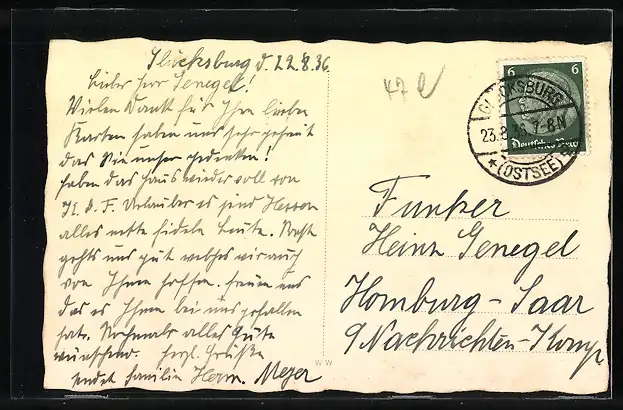 Glücksburg d. 22.8.36
Lieber Herr Genegel!
Vielen Dank für Ihre lieben
Karten haben uns sehr gefreut
das Sie unser gedenken!
haben das Haus wieder voll von
K. d. F. Urlauber es sind Herren
alles nette fidele Leute. Sonst
gehts uns gut welches wir auch
von Ihnen hoffen. freuen uns
das es Ihnen bei uns gefallen
hat. Nochmals alles Gute
wünschend. herzl. Grüße
sendet Familie Herm. Meyer
47 e
6 6
Deutsches Reich
GLÜCKSBURG
23.8.36.7-8N
★(OSTSEE)
Funker
Heinz Genegel
Homburg-Saar
9 Nachrichten-Komp
WW